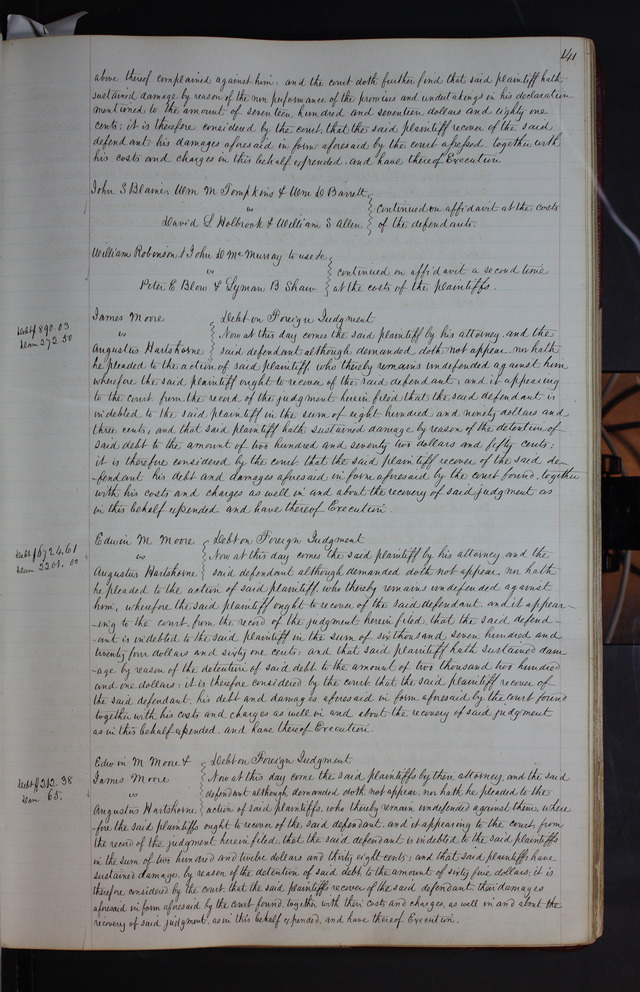 141
above thereof complained against him; and the court doth further find that said plaintiff hath
sustained damage by reason of the non performance of the promises and undertakings in his declaration
mentioned, to the amount of seventeen hundred and seventeen dollars and eighty one
cents; it is therefore considered by the court, that the said plaintiff recover of the said
defendant his damages aforesaid in form aforesaid by the court assessed, together with
his costs and charges in this behalf expended, and have thereof Execution
John S Blamer Wm M Tompkins & Wm D Barrett
vs
David L Holbrook & William S Allen
continued on affidavit at the costs
of the defendants.
William Robinson & John D McMurray to use &c
vs
Peter E Blow & Lyman B Shaw
continued on affidavit a second time
at the costs of the plaintiffs.
Debt $890.03
Dam 272.50
James Moore
vs
Augustus Hartshorne
Debt on Foreign Judgment
Now at this day comes the said plaintiff by his attorney, and the
said defendant although demanded doth not appear, nor hath
he pleaded to the action of said plaintiff, who thereby remains undefended against him
wherefore the said plaintiff ought to recover of the said defendant; and it appearing
to the court from the record of the judgment herein filed that the said defendant is
indebted to the said plaintiff in the sum of eight hundred and ninety dollars and
three cents, and that said plaintiff hath sustained damage by reason of the detention of
said debt to the amount of two hundred and seventy two dollars and fifty cents;
it is therefore considered by the court that the said plaintiff recover of the said de
-fendant his debt and damages aforesaid in form aforesaid by the court found, together
with his costs and charges as well in and about the recovery of said judgment as
in this behalf expended and have thereof Execution.
Debt $6724.61
Dam 2201.00
Edwin M Moore
vs
Augustus Hartshorne
Debt on Foreign Judgment
Now at this day comes the said plaintiff by his attorney and the
said defendant although demanded doth not appear nor hath
he pleaded to the action of said plaintiff, who thereby remains undefended against
him, wherefore the said plaintiff ought to recover of the said defendant, and it appear-
-ing to the court, from the record of the judgment herein filed, that the said defend-
-ant is indebted to the said plaintiff in the sum of six thousand seven hundred and
twenty four dollars and sixty one cents; and that said plaintiff hath sustained dam
-age by reason of the detention of said debt to the amount of two thousand two hundred
and one dollars; it is therefore considered by the court that the said plaintiff recover of
the said defendant, his debt and damages aforesaid in form aforesaid by the court found
together with his costs and charges as well in and about the recovery of said judgment
as in this behalf expended, and have thereof Execution.
Debt $212.38
Dam 65.
Edwin M Moore &
James Moore
vs
Augustus Hartshorne
Debt on Foreign Judgment
Now at this day come the said plaintiffs by their attorney, and the said
defendant although demanded doth not appear, nor hath he pleaded to the
action of said plaintiffs, who thereby remain undefended against them, where
-fore the said plaintiffs ought to recover of the said defendant, and it appearing to the court, from
the record of the judgment herein filed, that the said defendant is indebted to the said plaintiffs
in the sum of two hundred and twelve dollars and thirty eight cents; and that said plaintiffs have
sustained damage, by reason of the detention of said debt, to the amount of sixty five dollars; it is
therefore considered by the court that the said plaintiffs recover of the said defendant their damages
aforesaid in form aforesaid by the court found, together with their costs and charges, as well in and about the
recovery of said judgment, as in this behalf expended, and have thereof Execution.